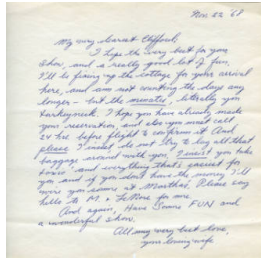 Nov. 22 '68
My very dearest Clifford,
I hope the very best for your
show, and a really good lot of fun.
I'll be fixing up the cottage for your arrival
here, and am not counting the days any
longer - but the minutes, literally you
I hope you have already made
your reservation, and also you must call
24 hrs before flight to confirm it. And
please I insist do not try to lug all that
baggage around with you, I insist you take
taxis - and everything that's easiest for
you and if you don't have the money I'll
wire you some at Martha's. Please say
hello to M. + for me.
And again, Have Some FUN and
a wonderful show.
All my very best love,
your loving wife